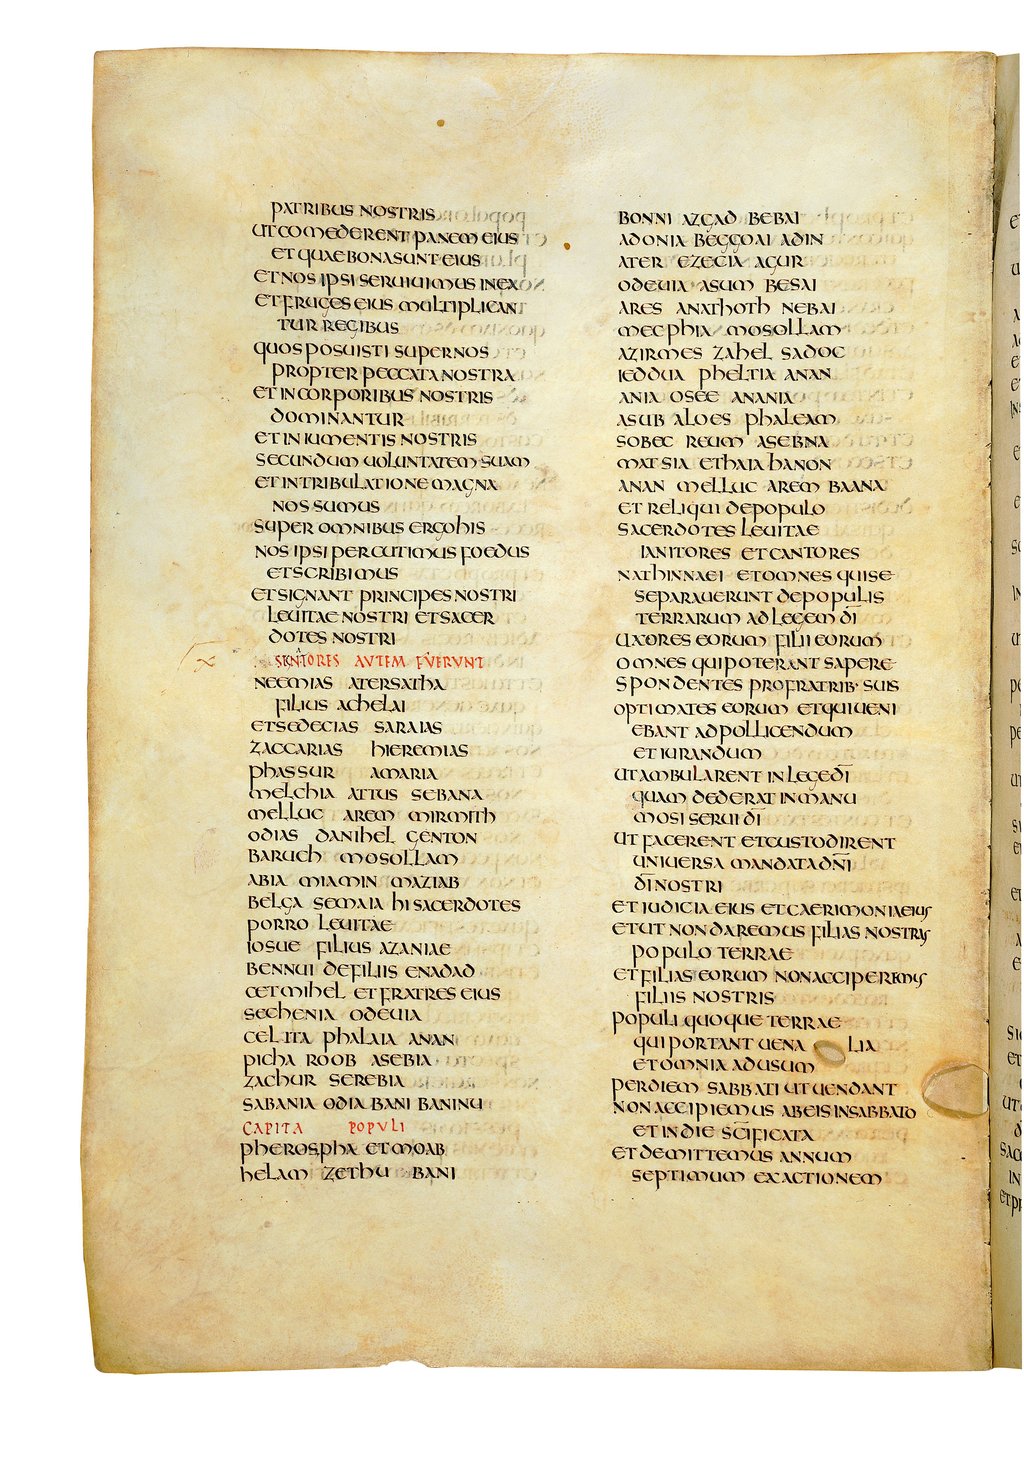 PATRIBUS NOSTRIS
UT COMEDERENT PANEM EIUS
ET QUAE BONA SUNT EIUS
ET NOS IPSI SERUIUIMUS IN EX
ET FRUGES EIUS MULTIPLICAN
TUR REGIBUS
QUOS POSUISTI SUPER NOS
PROPTER PECCATA NOSTRA
ET IN CORPORIBUS NOSTRIS
DOMINANTUR
ET IN IUMENTIS NOSTRIS
SECUNDUM UOLUNTATEM SUAM
ET IN TRIBULATIONE MAGNA
NOS SUMUS
SUPER OMNIBUS ERGO HIS
NOS IPSI PERCUTIMUS FOEDUS
ET SCRIBIMUS
ET SIGNANT PRINCIPES NOSTRI
LEUITAE NOSTRI ET SACER
DOTES NOSTRI
SIGNATORES AUTEM FUERUNT
NEEMIAS ATERSATHA
FILIUS ACHELAI
ET SEDECIAS SARAIAS
ZACCARIAS HIEREMIAS
PHASSUR AMARIA
MELCHIA ATTUS SEBANA
MELLUC AREM MIRMITH
ODIAS DANIHEL GENTON
BARUCH MOSOLLAM
ABIA MIAMIN MAZIAB
BELGA SEMAIA HI SACERDOTES
PORRO LEUITAE
IOSUE FILIUS AZANIAE
BENNUI DE FILIIS ENADAD
CETMIHEL ET FRATRES EIUS
SECHENIA ODEUIA
CELITA PHALAIA ANAN
PICHA ROOB ASEBIA
ZACHUR SEREBIA
SABANIA ODIA BANI BANINU
CAPITA POPULI
PHEROSPHA ET MOAB
HELAM ZETHU BANI
BONNI AZGAD BEBAI
ADONIA BEGGOAI ADIN
ATER EZECIA AGUR
ODEUIA ASUM BESAI
ARES ANATHOTH NEBAI
MECPHIA MOSOLLAM
AZIRMES ZAHEL SADOC
IEDDUA PHELTIA ANAN
ANIA OSEE ANANIA
ASUB ALOES PHALEAM
SOBEC REUM ASEBNA
MATSIA ETHAIA HANON
ANAN MELLUC AREM BAANA
ET RELIQUI DE POPULO
SACERDOTES LEUITAE
IANITORES ET CANTORES
NATHINNAEI ET OMNES QUI SE
SEPARAUERUNT DE POPULIS
TERRARUM AD LEGEM D̅I̅
UXORES EORUM FILII EORUM
OMNES QUI POTERANT SAPERE
SPONDENTES PRO FRATRIB· SUIS
OPTIMATES EORUM ET QUI UENI
EBANT AD POLLICENDUM
ET IURANDUM
UT AMBULARENT IN LEGE D̅I̅
QUAM DEDERAT IN MANU
MOSI SERUI D̅I̅
UT FACERENT ET CUSTODIRENT
UNIUERSA MANDATA D̅N̅I̅
D̅I̅ NOSTRI
ET IUDICIA EIUS ET CAERIMONIAS EIUS
ET UT NON DAREMUS FILIAS NOSTRAS
POPULO TERRAE
ET FILIAS EORUM NON ACCIPEREMUS
FILIIS NOSTRIS
POPULI QUOQUE TERRAE
QUI PORTANT UENA LIA
ET OMNIA AD USUM
PER DIEM SABBATI UT UENDANT
NON ACCIPIEMUS AB EIS IN SABBATO
ET IN DIE SC̅I̅FICATA
ET DEMITTEMUS ANNUM
SEPTIMUM EXACTIONEM